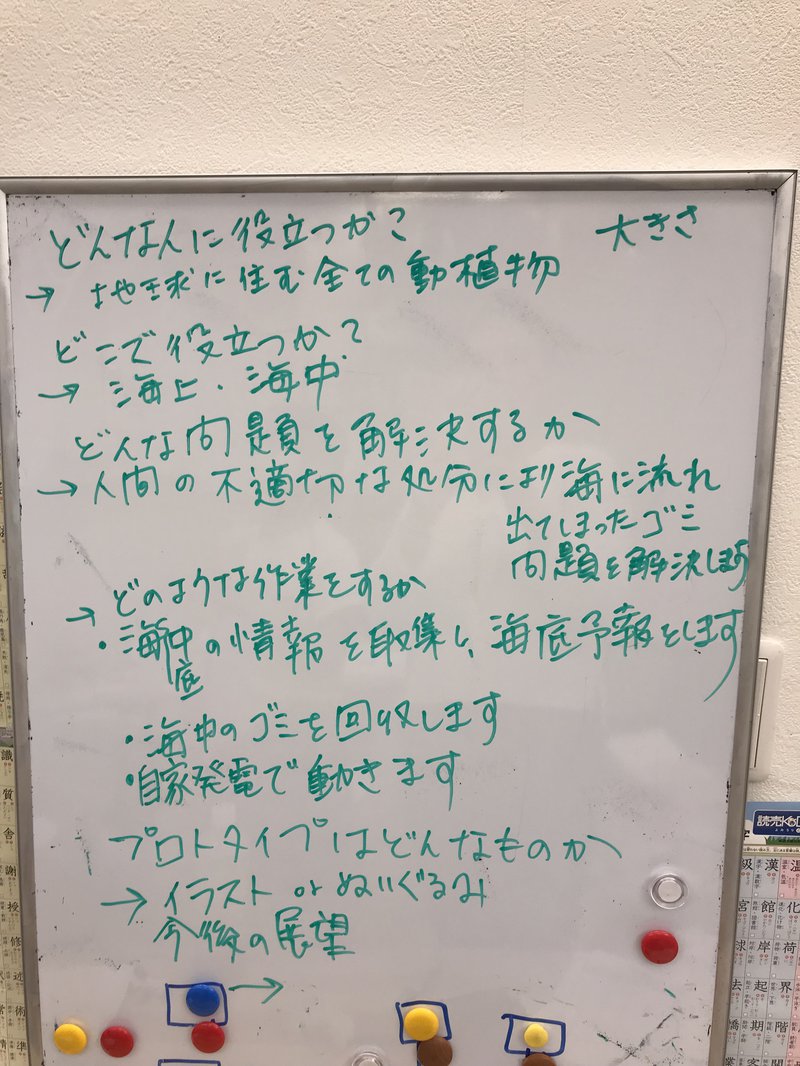 どんな人に役立つか?
大きさ
→ 地球に住む全ての動植物
どこで役立つか?
→ 海上・海中
どんな問題を解決するか
→ 人間の不適切な処分により海に流れ
出てしまったゴミ
問題を解決します
→ どのような作業をするか
・海中の情報を取集し、海底予報をします
底
・海中のゴミを回収します
・自家発電で動きます
プロトタイプはどんなものか
→ イラスト or ぬいぐるみ
今後の展望
→
読売KODO
級 漢 温
宮 館 化
球 岸 荷
去 起 界
橋 期 階
業 客
識
質
舎
謝
授
修
述
術
準